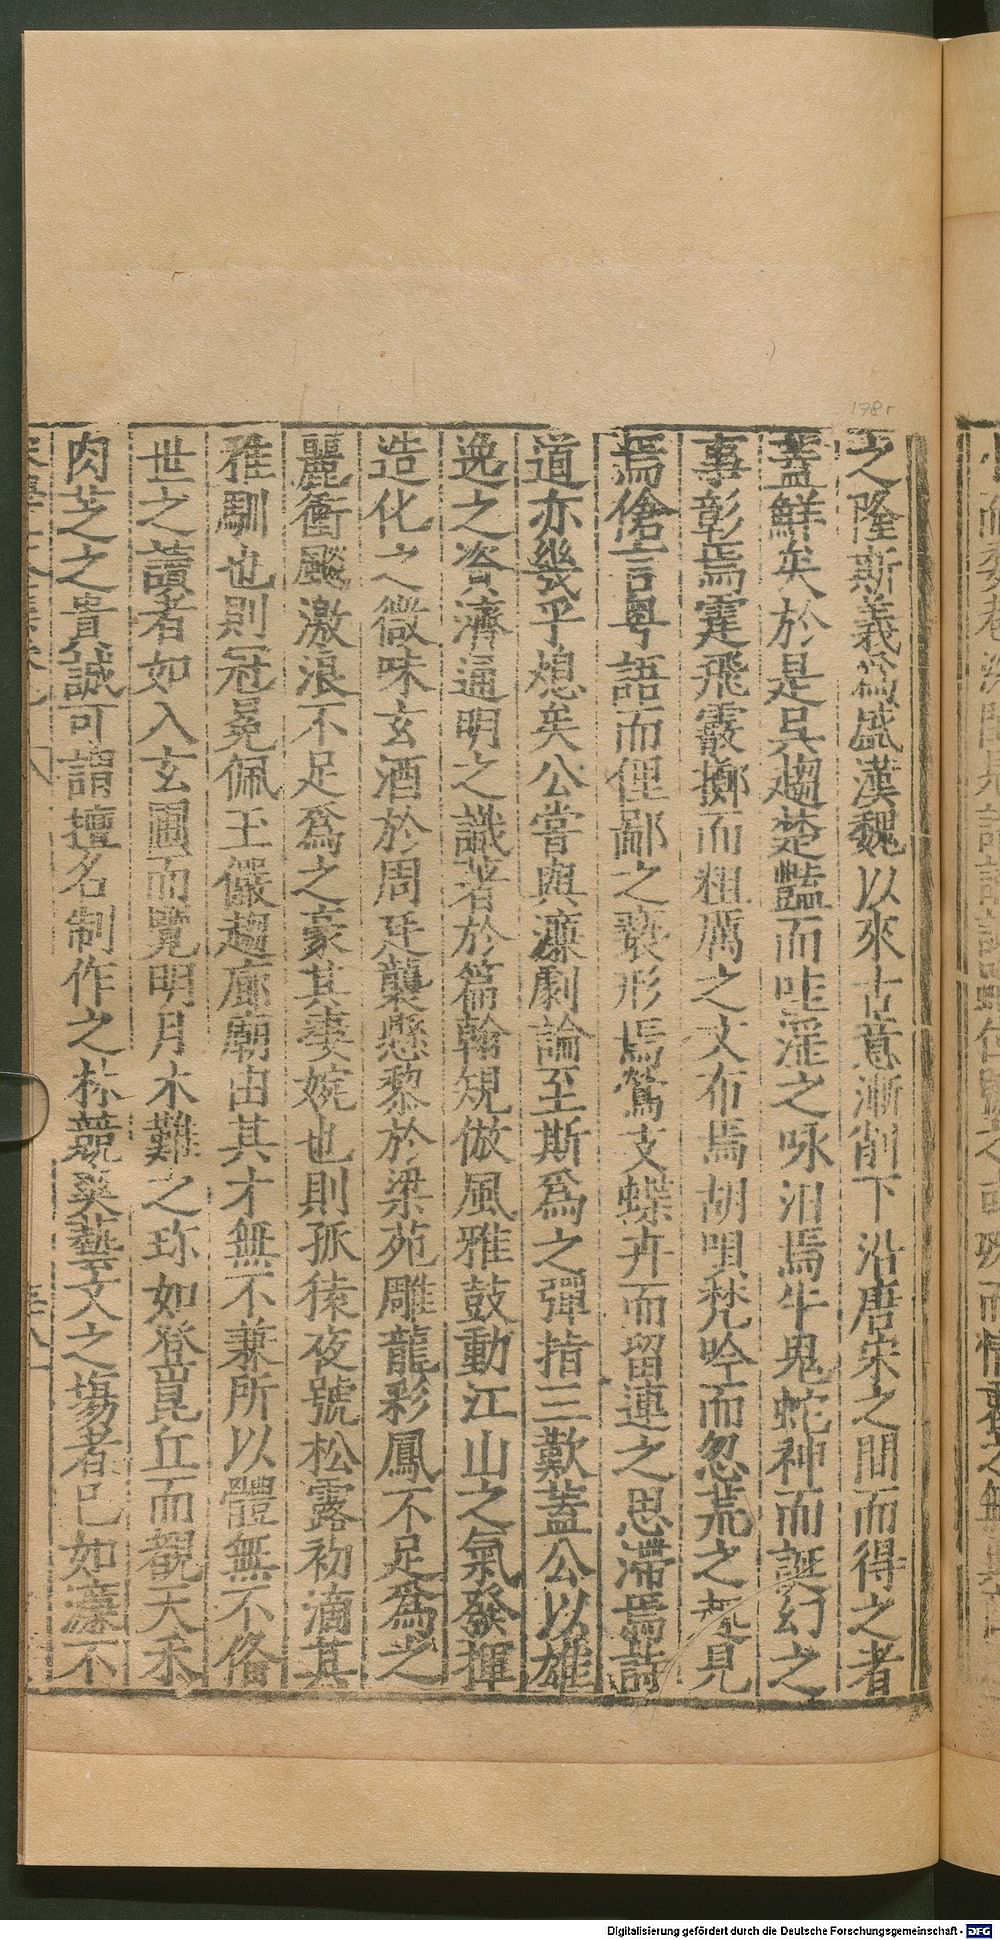 之隆斯義爲盛漢魏以來古意漸削下沿唐宋之間而得之者
蓋鮮矣於是吳趨楚豔而哇淫之咏汩焉牛鬼蛇神而誕幻之
事彰焉霆飛霰擲而粗厲之文布焉胡唄梵吟而忽荒之㔾見
焉傖言粵語而俚鄙之褻形焉鶯支蝶卉而留連之思滯焉詩
道亦幾乎熄矣公嘗與濂劇論至斯爲之彈指三歎蓋公以雄
逸之資濟通明之識著於篇翰規倣風雅鼓動江山之氣發揮
造化之微味玄酒於周廷襲懸黎於梁苑雕龍彩鳳不足爲之
麗衝飈激浪不足爲之豪其婁婉也則孤猿夜號松露初滴其
雅馴也則冠冕佩玉儼趨廊廟由其才無不兼所以體無不俻
世之讀者如入玄圃而覽明月木難之珎如登崑丘而覩天禾
肉芝之貴誠可謂擅名制作之林競爽藝文之場者已如濂不
178r
Digitalisierung gefördert durch die Deutsche Forschungsgemeinschaft - DFG